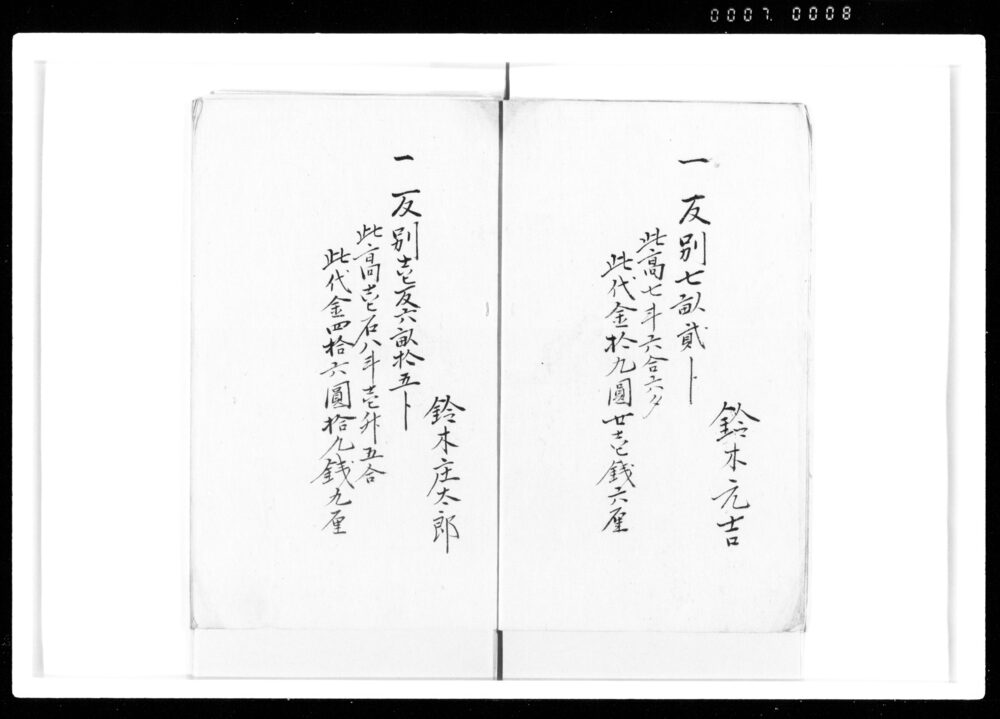 0007. 0008
鈴木元吉
一 反別七畝貳卜
此高七斗六合六夕
此代金拾九圓廿壱銭六厘
鈴木庄太郎
一 反別壱反六畝拾五卜
此高壱石八斗壱升五合
此代金四拾六圓拾九銭九厘